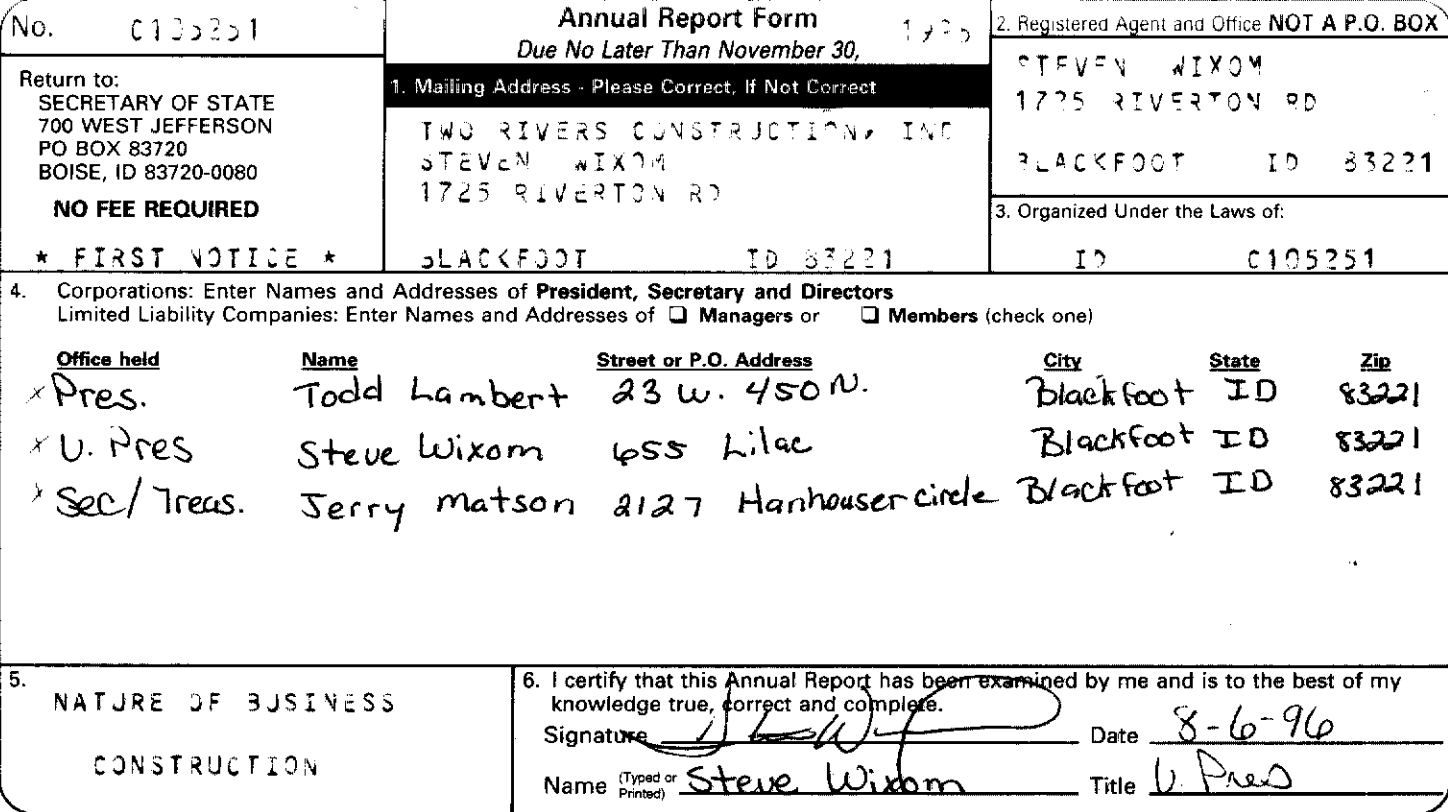 No. C105251
Annual Report Form
Due No Later Than November 30,
Return to:
SECRETARY OF STATE
700 WEST JEFFERSON
PO BOX 83720
BOISE, ID 83720-0080
NO FEE REQUIRED
* FIRST NOTICE *
1. Mailing Address - Please Correct, If Not Correct
TWO RIVERS CONSTRUCTION, INC
STEVEN WIXOM
1725 RIVERTON RD
BLACKFOOT ID 83221
2. Registered Agent and Office NOT A P.O. BOX
STEVEN WIXOM
1725 RIVERTON RD
BLACKFOOT ID 83221
3. Organized Under the Laws of:
ID C105251
4. Corporations: Enter Names and Addresses of President, Secretary and Directors
Limited Liability Companies: Enter Names and Addresses of ❑ Managers or ❑ Members (check one)
Office held Name Street or P.O. Address City State Zip
x Pres. Todd Lambert 23 W. 450 N. Blackfoot ID 83221
x V. Pres Steve Wixom 655 Lilac Blackfoot ID 83221
x Sec/Treas. Jerry Matson 2127 Hanhouser circle Blackfoot ID 83221
5.
NATURE OF BUSINESS
CONSTRUCTION
6. I certify that this Annual Report has been examined by me and is to the best of my
knowledge true, correct and complete.
Signature Date 8-6-96
Name (Typed or Printed) Steve Wixom Title V. Pres